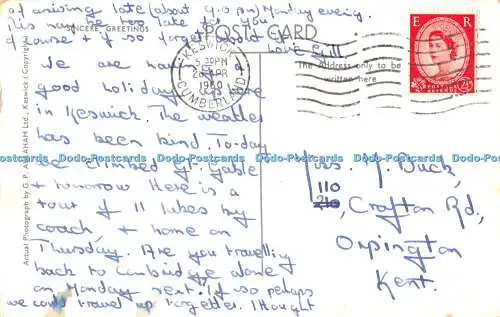 of arising late (about 9.0 pm) Monday evening.
This may be too late for you
of course & if so forget would have
Gill
SINCERE GREETINGS
POST CARD
The Address only to be
written here
KESWICK
5.30PM
28 APR
1960
CUMBERLAND
E R
POSTAGE
2½D
We are having a
good holiday up here
in Keswick. The weather
has been kind. To-day
we climbed Gt. Gable
& tomorrow there is a
tour of 11 lakes by
coach, & home on
Thursday. Are you travelling
back to Cambridge alone
on Monday next? If so perhaps
we could travel up together. I thought
Mrs. M. Buck,
110
210, Crofton Rd,
Orpington
Kent.
Actual Photograph by G. P. ABRAHAM Ltd., Keswick (Copyright)
Dodo-Postcards Dodo-Postcards Dodo-Postcards Dodo-Postcards Dodo-Postcards Dodo-Postcards